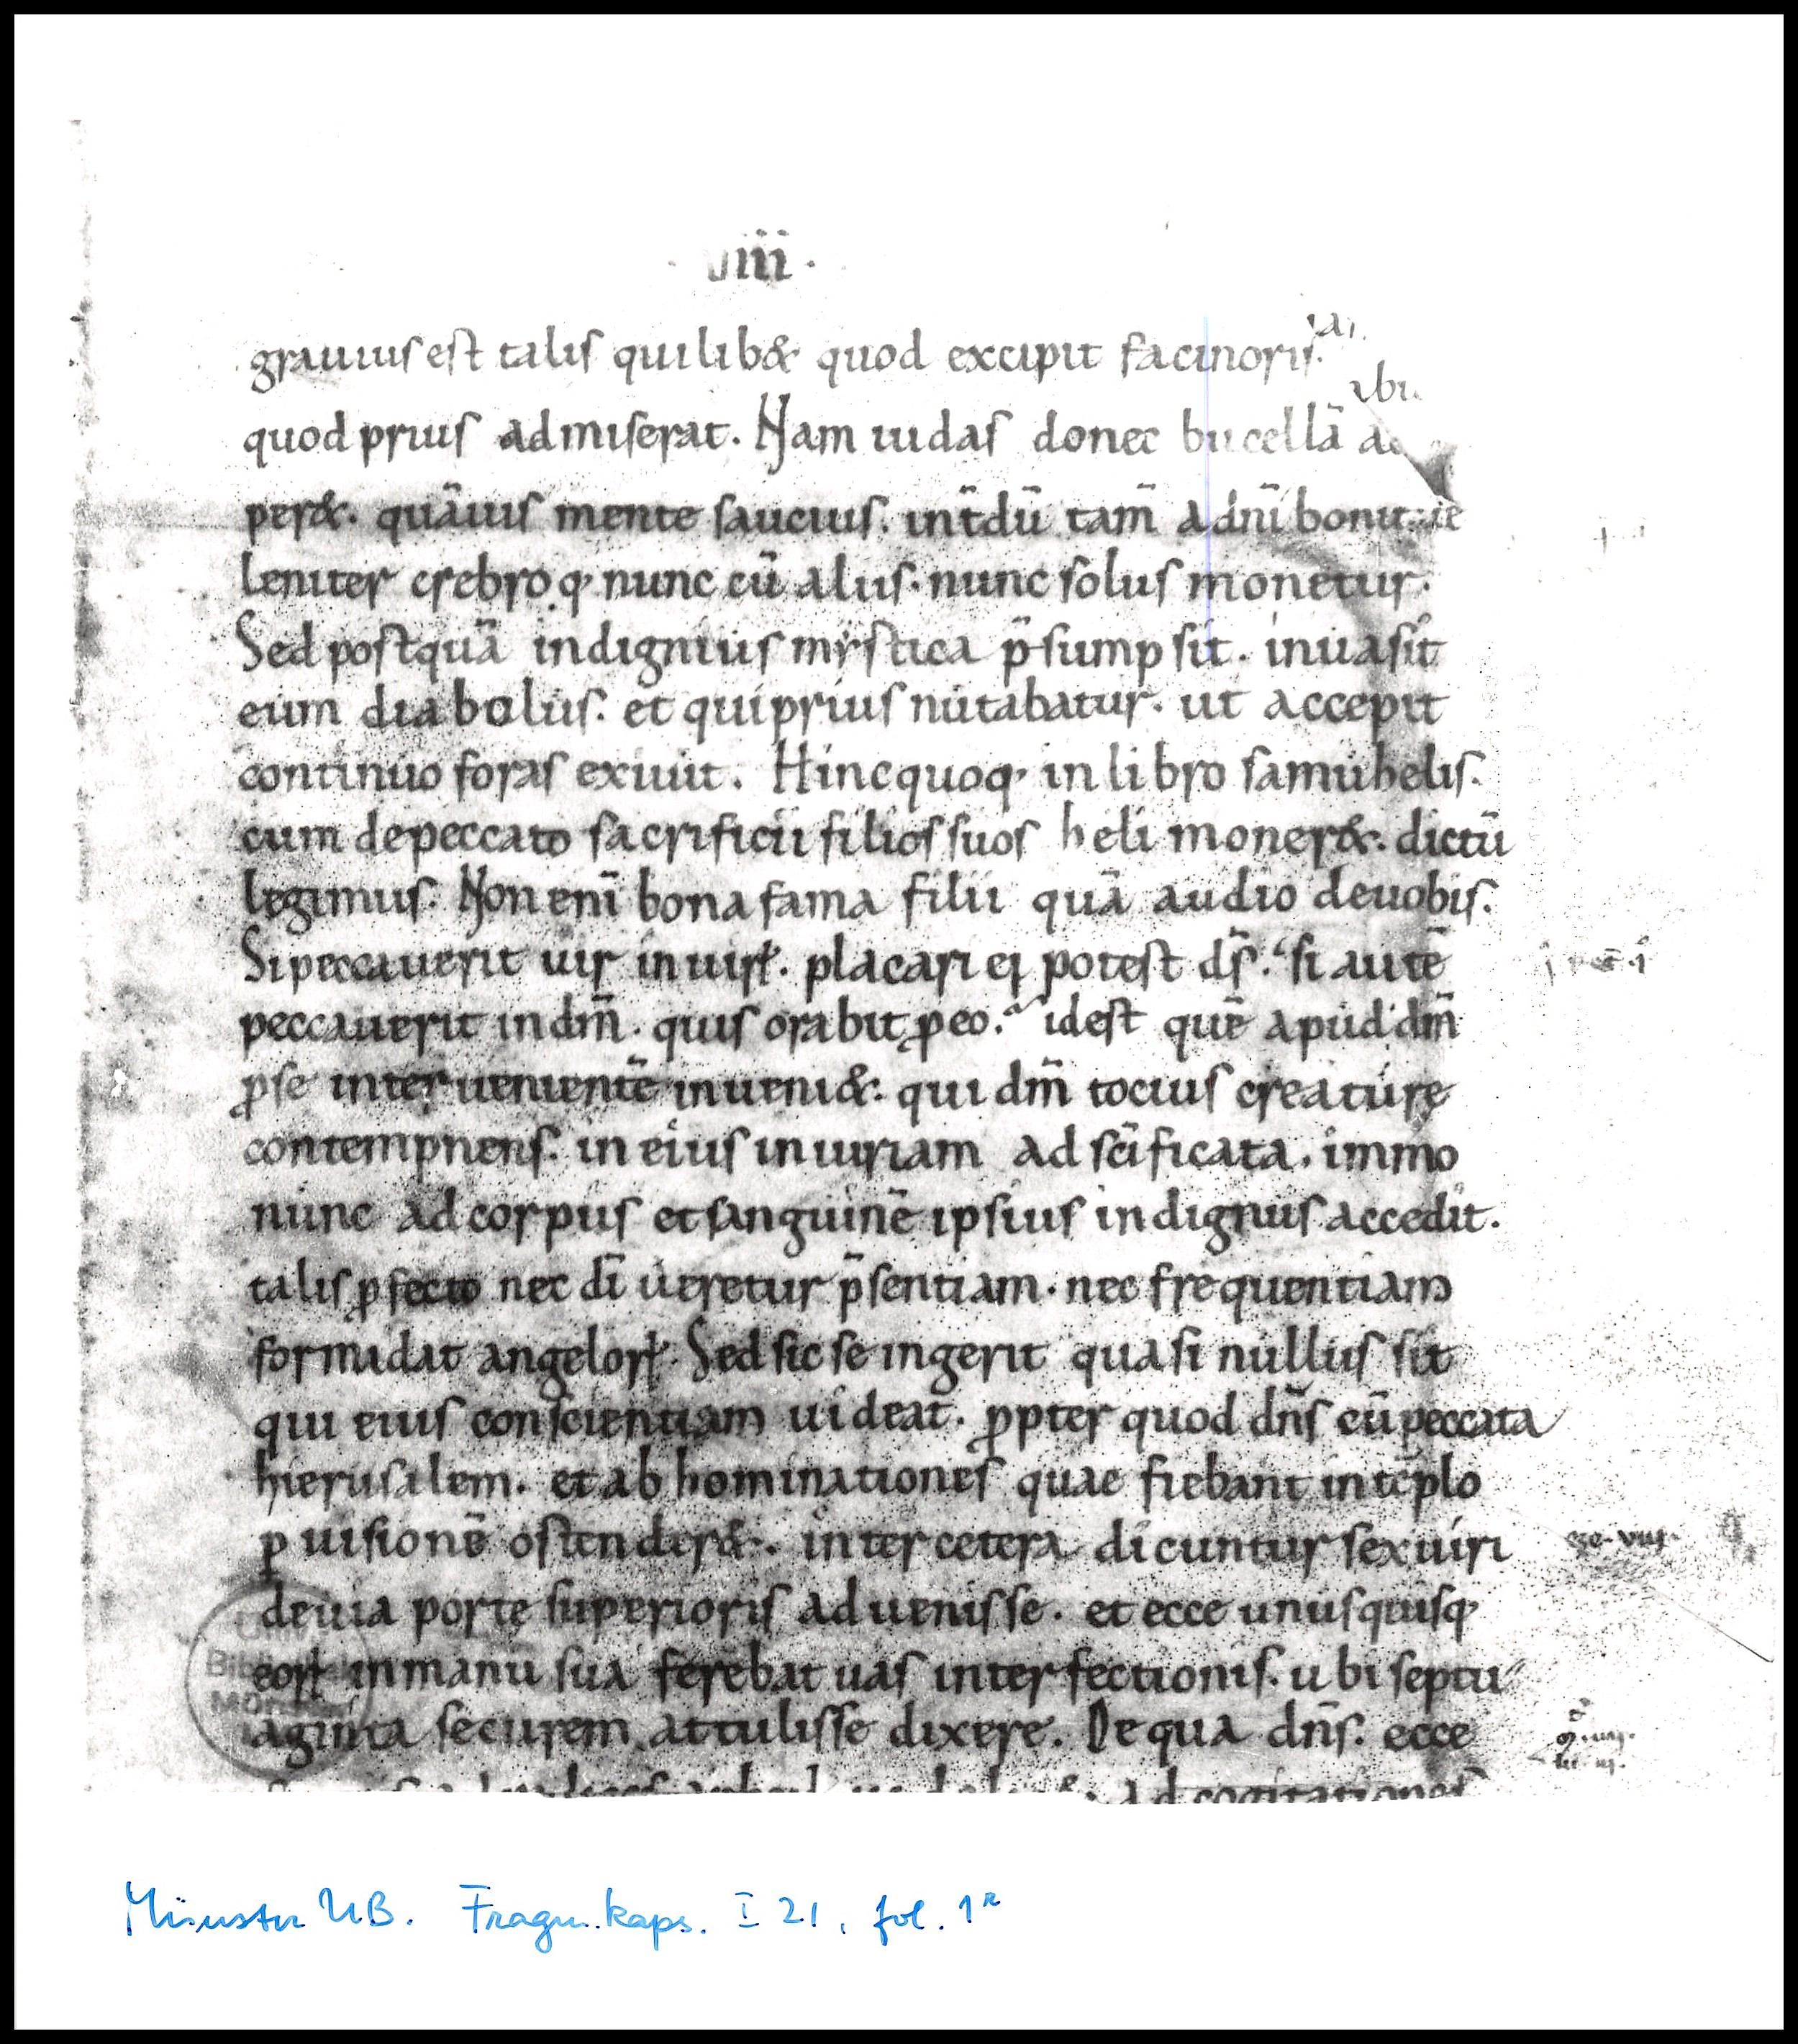 viii.
grauius est talis quilib& quod excipit facinoris.
quod prius admiserat. Nam iudas donec bucellā
per&. quāuis mente saucius. int̄dū tam̄ a dn̄i
leniter crebroq; nunc cū aliis. nunc solus monetur.
Sed postquā indignius mystica p̄sumpsit. inuasit
eum diabolus. et qui prius nutabatur. ut accepit
continuo foras exiuit. Hinc quoq; in libro samuhelis.
cum de peccato sacrificii filios suos heli moner&. dictū
legimus. Non enī bona fama filii quā audio de uobis.
Si peccauerit uir in uirꝝ. placari ei potest ds̄. si autē
peccauerit in dm̄. quis orabit ꝓ eo. id est quē apud dm̄
ꝓ se interuenientē inueni&. qui dm̄ tocius creaturę
contempnens. in eius iniuriam ad sc̄ificata. immo
nunc ad corpus et sanguinē ipsius indignus accedit.
talis ꝓfecto nec dī ueretur p̄sentiam. nec frequentiam
formidat angeloꝝ. Sed sic se ingerit quasi nullus sit
qui eius conscientiam uideat. ꝓpter quod dn̄s cū peccata
hierusalem. et abhominationes quae fiebant in tēplo
ꝑ uisionē ostender&. inter cetera dicuntur sex uiri
de uia portę superioris aduenisse. et ecce unusquisq;
eoꝝ in manu sua ferebat uas interfectionis. ubi septu
aginta securem attulisse dixere. De qua dn̄s. ecce
ad cogitationes
Münster UB. Fragm.kaps. I 21, fol. 1r